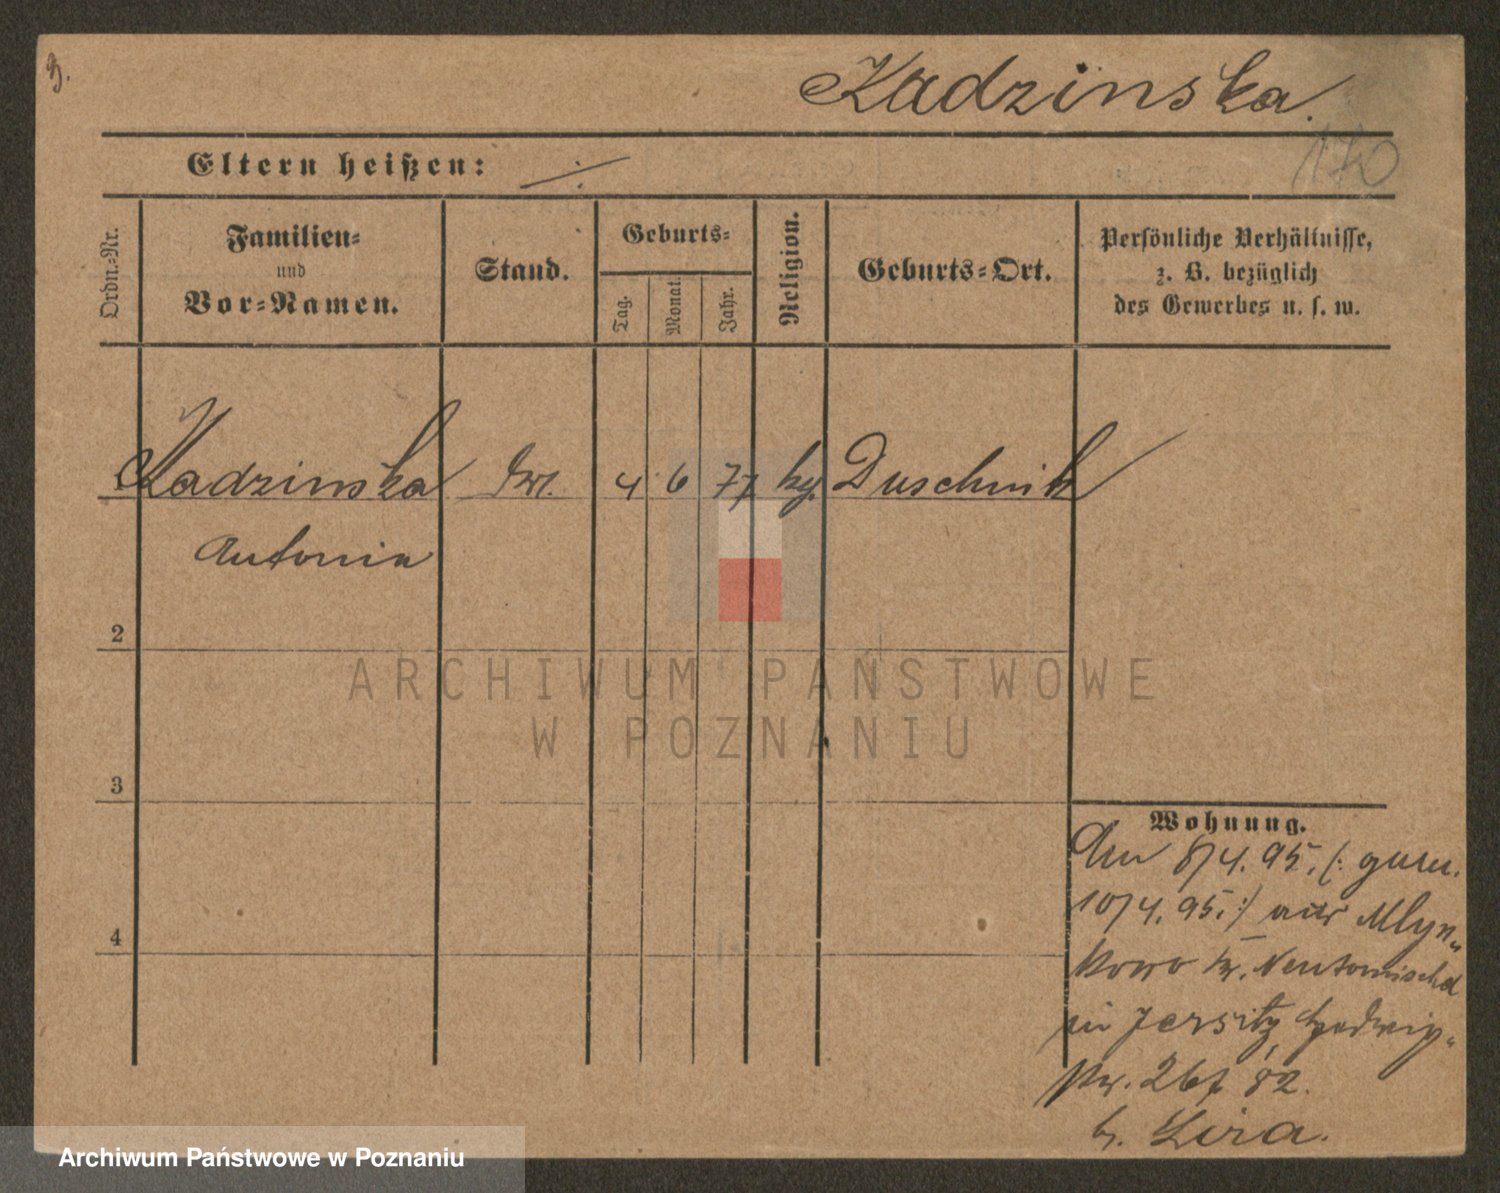 3.
Kadzinska.
170
Eltern heißen: ./.
Ordn.-Nr.
Familien-
und
Vor-Namen.
Stand.
Geburts-
Tag.
Monat.
Jahr.
Religion.
Geburts-Ort.
Persönliche Verhältnisse,
z. B. bezüglich
des Gewerbes u. s. w.
Kadzinska 4 6 77 Duschnik
Antonia
2
3
4
Wohnung.
An 8/4. 95. (: gem.
10/4. 95. :) aus Mlyn-
kowo Kr. Neutomischel
in Jersitz, Hedwig-
str. 26
b. Lira.
ARCHIWUM PAŃSTWOWE
W POZNANIU
Archiwum Państwowe w Poznaniu